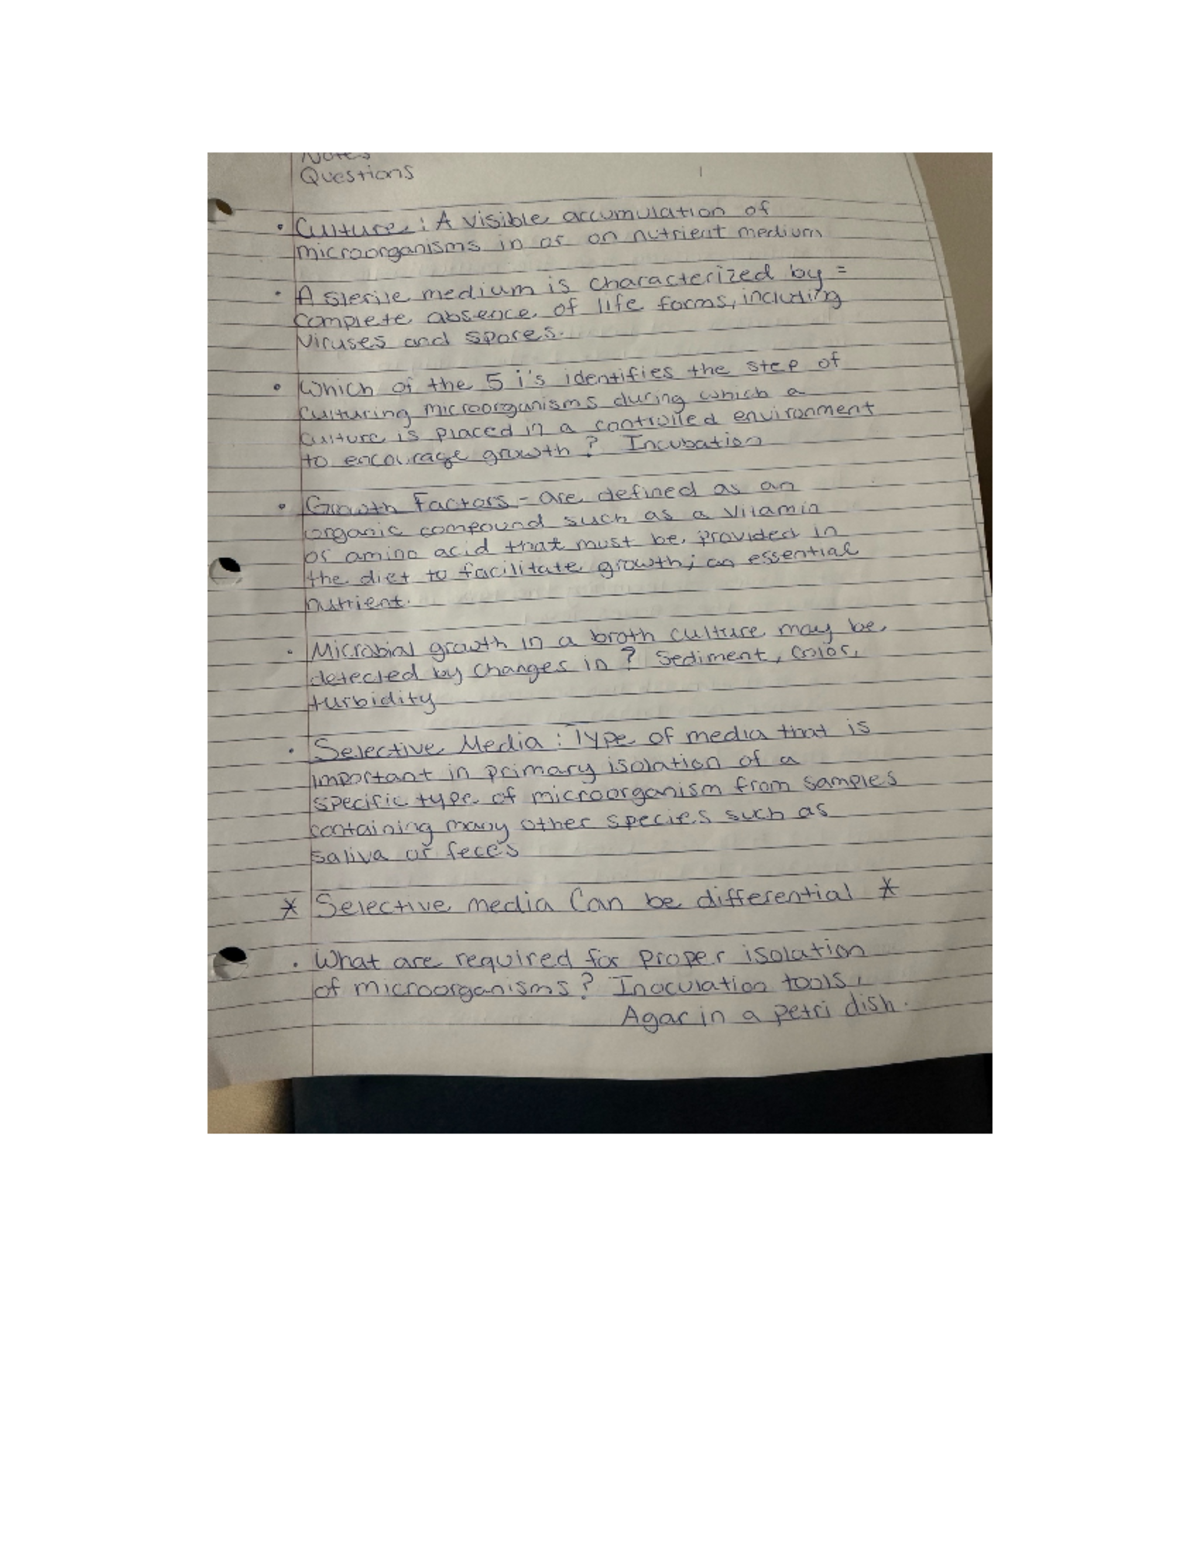 Notes
Questions
• Culture: A visible accumulation of
microorganisms in or on nutrient medium
• A sterile medium is characterized by =
complete absence of life forms, including
viruses and spores.
• Which of the 5 i's identifies the step of
culturing microorganisms during which a
culture is placed in a controlled environment
to encourage growth? Incubation
• Growth Factors - are defined as an
organic compound such as a vitamin
or amino acid that must be provided in
the diet to facilitate growth; an essential
nutrient.
• Microbial growth in a broth culture may be
detected by changes in? Sediment, color,
turbidity
• Selective Media: Type of media that is
important in primary isolation of a
specific type of microorganism from samples
containing many other species such as
saliva or feces
* Selective media Can be differential *
• What are required for proper isolation
of microorganisms? Inoculation tools,
Agar in a petri dish.